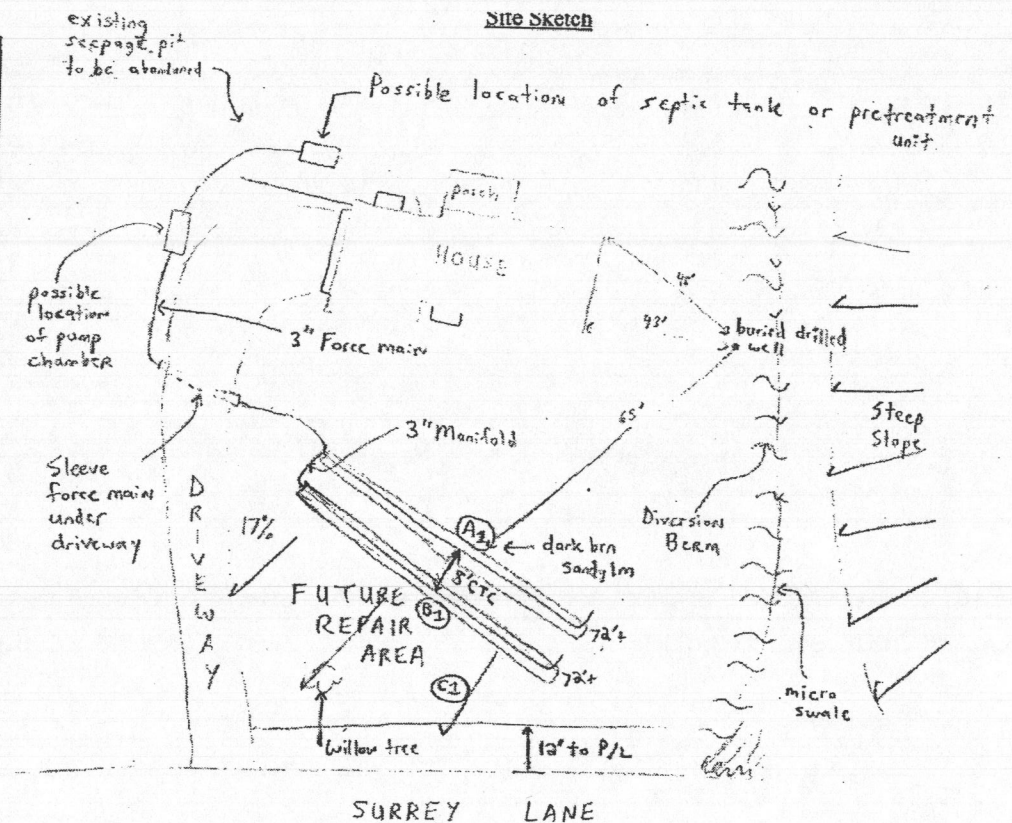 Site Sketch
existing
seepage pit
to be abandoned
Possible location of septic tank or pretreatment
unit
porch
HOUSE
possible
location
of pump
chamber
3" Force main
43'
buried drilled
well
65'
Steep
Slope
3" Manifold
Sleeve
force main
under
driveway
DRIVEWAY
17%
A1
dark brn
sandy lm
Diversion
Berm
8' CTC
B1
FUTURE
REPAIR
AREA
72'+
72'+
C1
micro
swale
Willow tree
12' to P/L
SURREY LANE